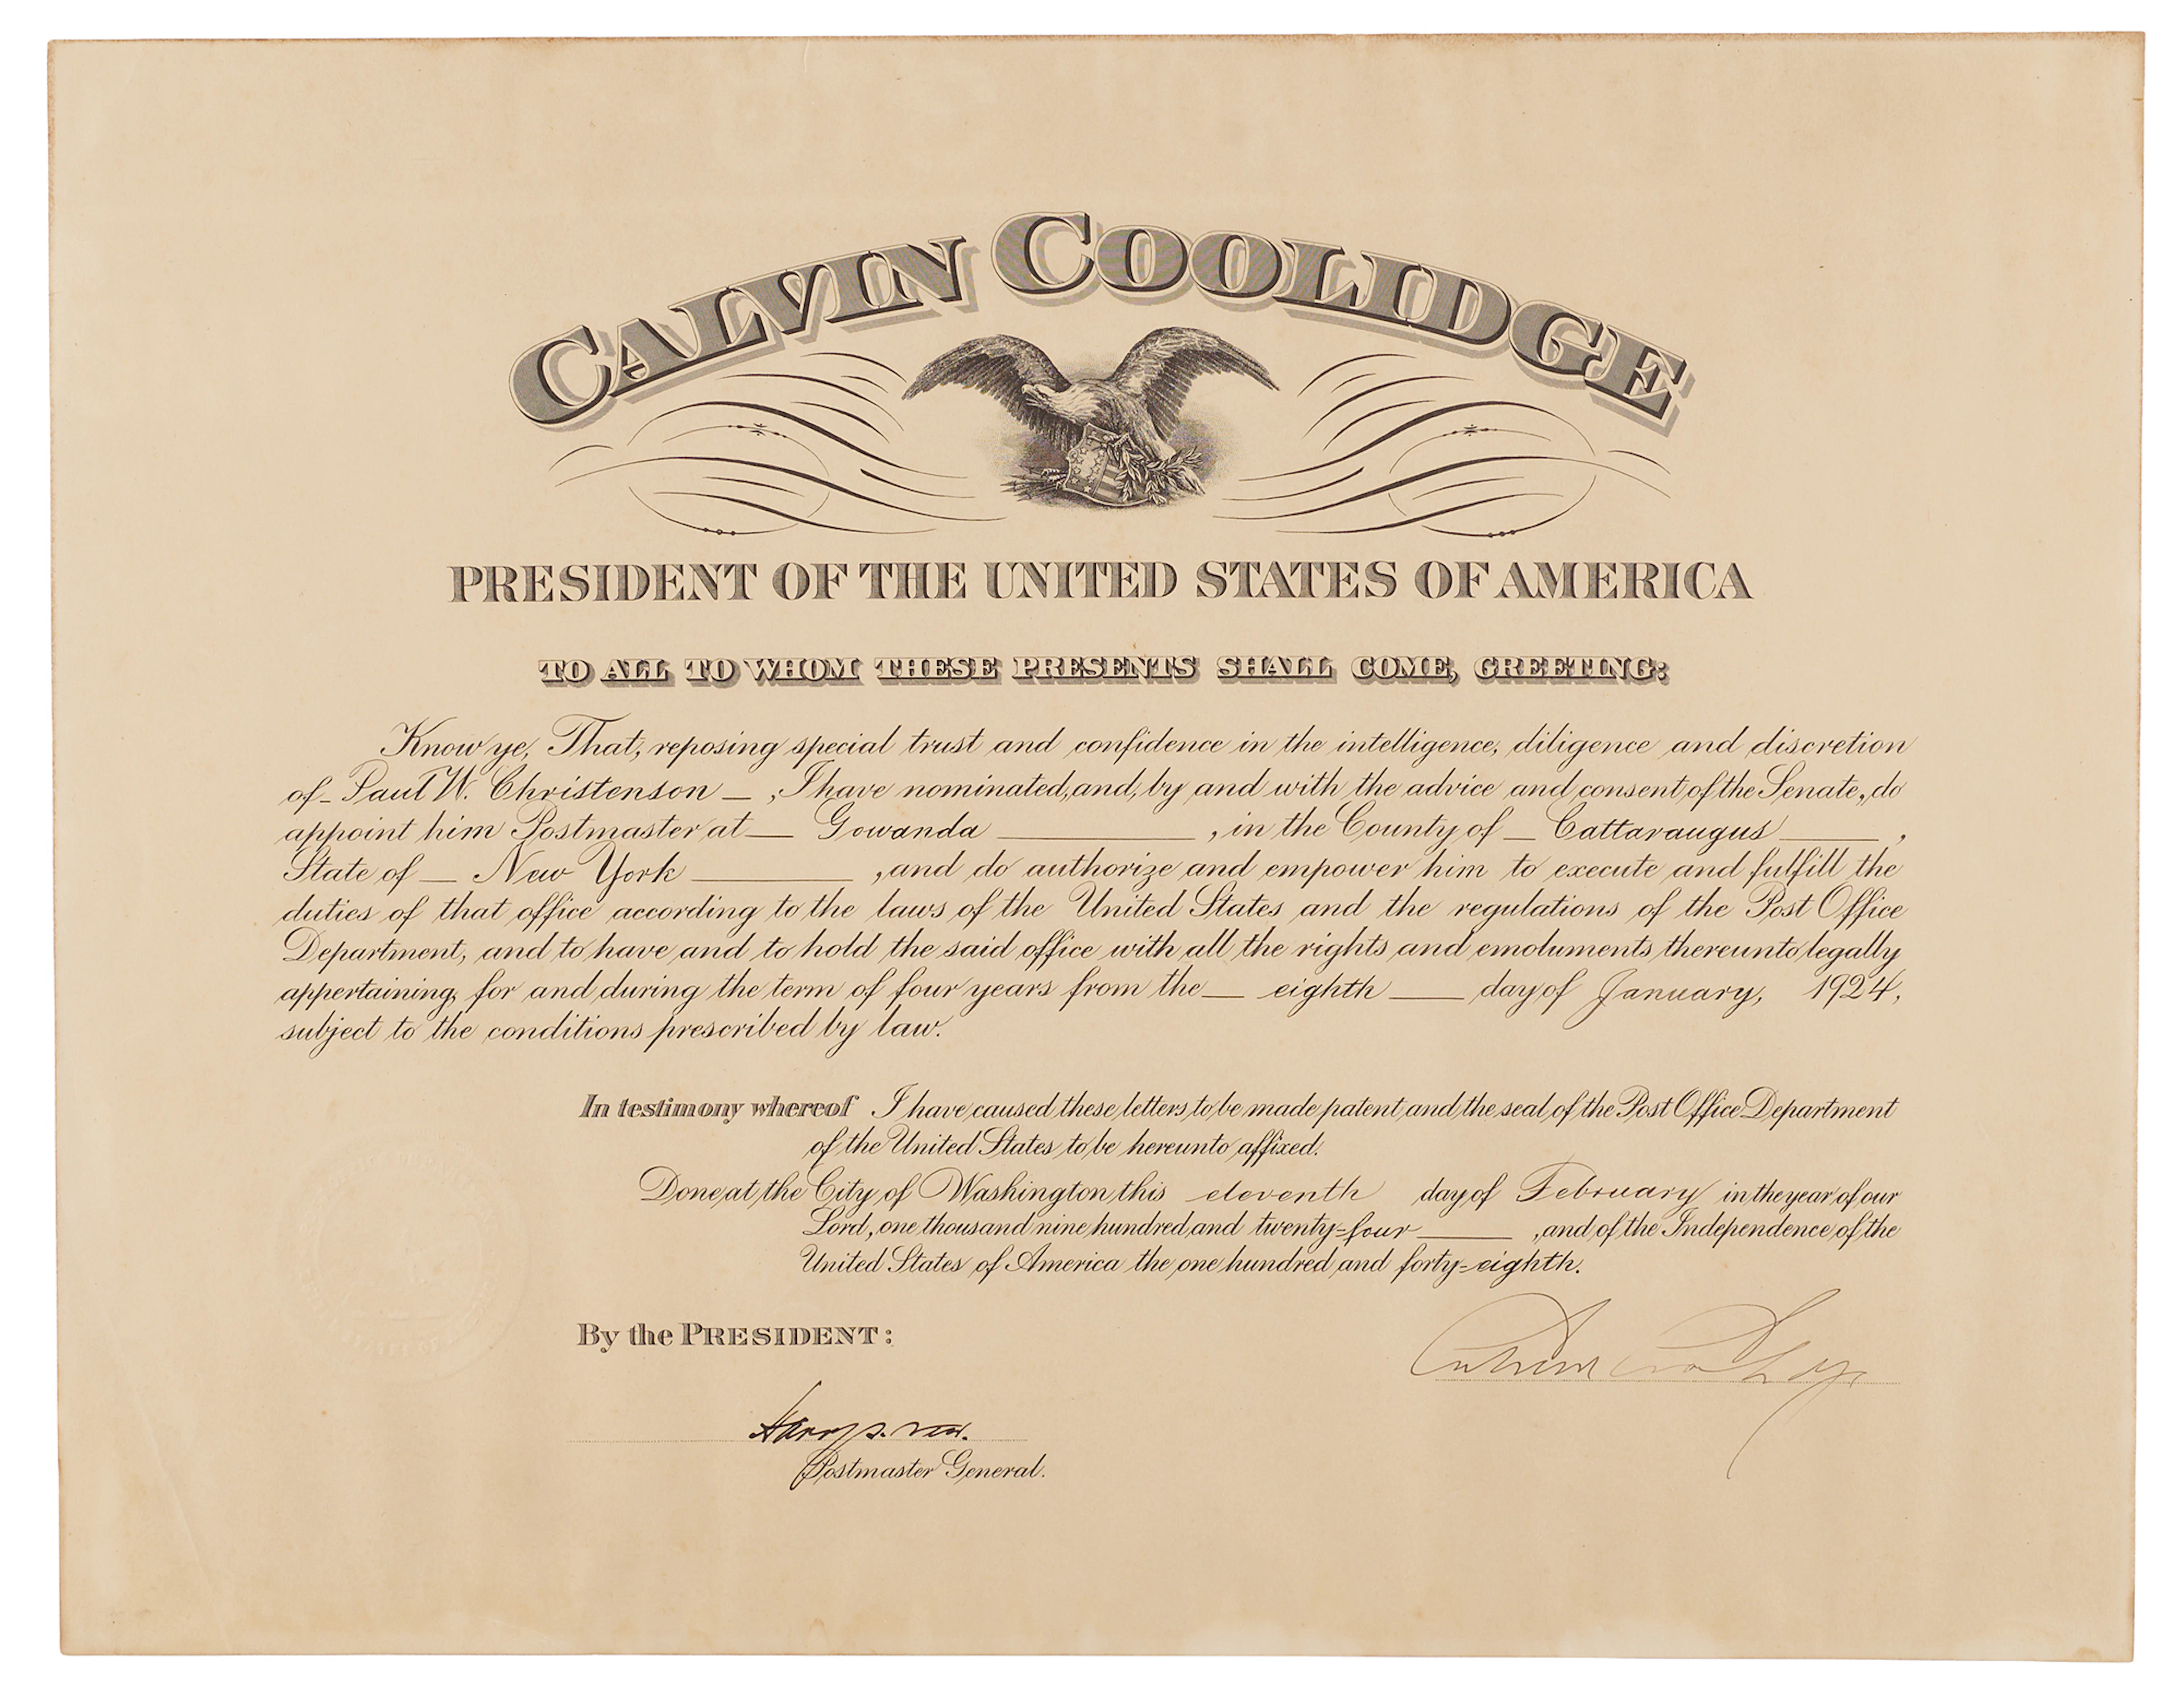 CALVIN COOLIDGE
PRESIDENT OF THE UNITED STATES OF AMERICA
TO ALL TO WHOM THESE PRESENTS SHALL COME, GREETING:
Know ye, That, reposing special trust and confidence in the intelligence, diligence and discretion
of _ Paul W. Christenson _ , I have nominated, and, by and with the advice and consent of the Senate, do
appoint him Postmaster at _ Gowanda _ , in the County of _ Cattaraugus _ ,
State of _ New York _ , and do authorize and empower him to execute and fulfill the
duties of that office according to the laws of the United States and the regulations of the Post Office
Department, and to have and to hold the said office with all the rights and emoluments thereunto legally
appertaining, for and during the term of four years from the _ eighth _ day of January, 1924,
subject to the conditions prescribed by law.
In testimony whereof I have caused these letters to be made patent and the seal of the Post Office Department
of the United States to be hereunto affixed.
Done at the City of Washington this eleventh day of February in the year of our
Lord, one thousand nine hundred and twenty-four _ , and of the Independence of the
United States of America the one hundred and forty-eighth.
By the PRESIDENT:
Calvin Coolidge
Harry S. New.
Postmaster General.